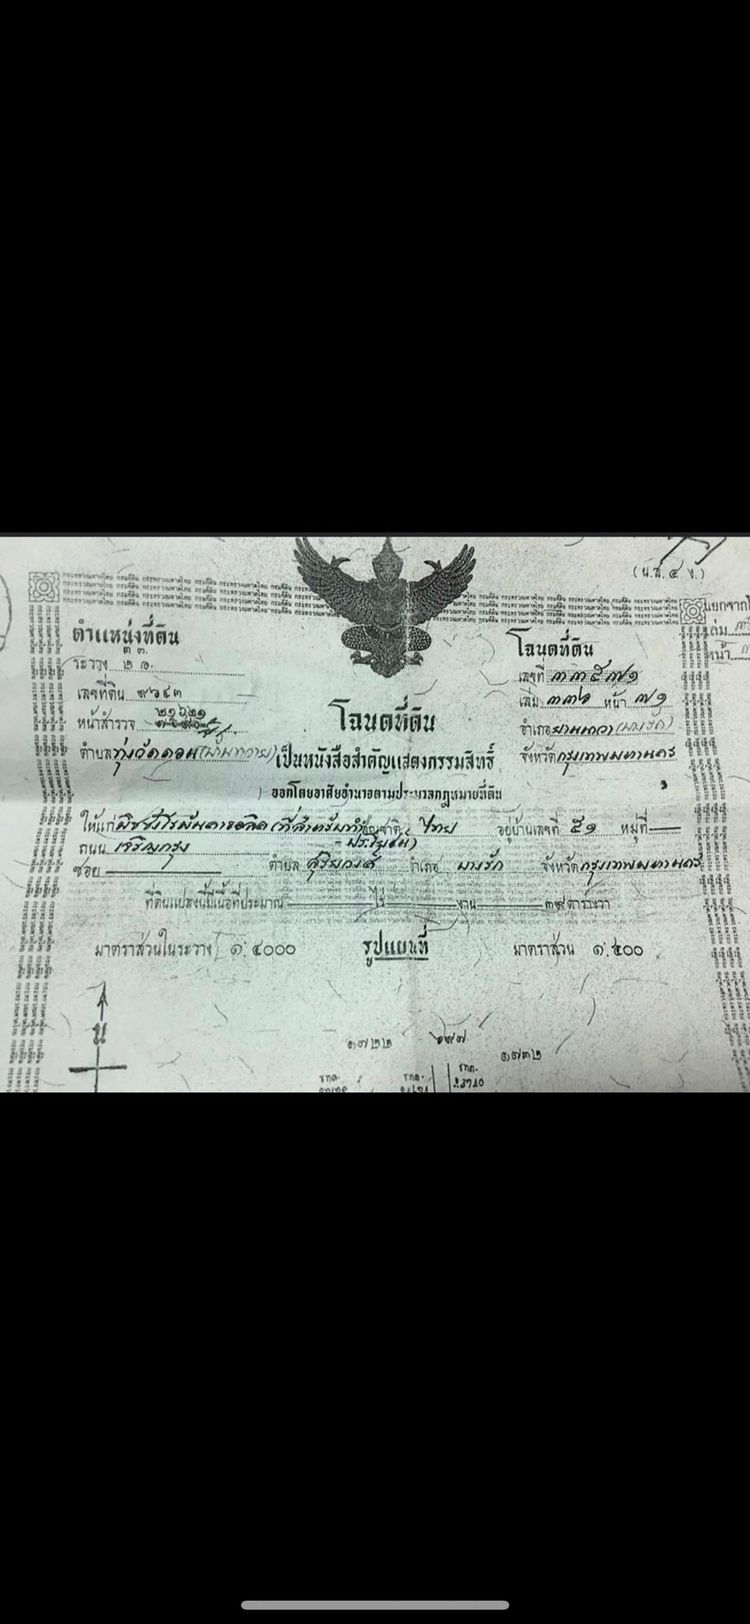 (น.ส.๔ จ.)
ตำแหน่งที่ดิน
ระวาง
เลขที่ดิน ๙๖๔๓
หน้าสำรวจ ๒๑๖๒๑
ตำบล ทุ่งวัดดอน (บ้านทวาย)
โฉนดที่ดิน
เลขที่ ๓๓๕๗๑
เล่ม ๓๓๖ หน้า ๗๑
อำเภอ ยานนาวา (บางรัก)
จังหวัด กรุงเทพมหานคร
แยกจาก
เล่ม
หน้า
โฉนดที่ดิน
เป็นหนังสือสำคัญแสดงกรรมสิทธิ์
ออกโดยอาศัยอำนาจตามประมวลกฎหมายที่ดิน
ให้แก่ มิซซังโรมันคาธอลิค (ที่สำหรับทำประโยชน์) สัญชาติ ไทย อยู่บ้านเลขที่ ๕๑ หมู่ที่
ถนน เจริญกรุง
ซอย ตำบล สุริยวงศ์ อำเภอ บางรัก จังหวัด กรุงเทพมหานคร
ที่ดินแปลงนี้มีเนื้อที่ประมาณ ไร่ งาน ๓๙ ตารางวา
มาตราส่วนในระวาง ๑:๔๐๐๐ รูปแผนที่ มาตราส่วน ๑:๕๐๐
น
๑๗๒๒ ๖๙๗ ๑๗๓๒